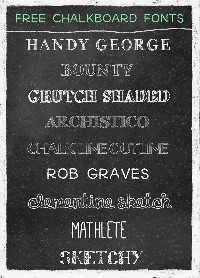 FREE CHALKBOARD FONTS
HANDY GEORGE
BOUNTY
CRUTCH SHADED
ARCHISTICO
CHALK LINE OUTLINE
ROB GRAVES
clementine sketch
MATHLETE
SKETCHY